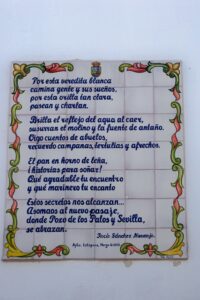 Por esta veredita blanca
camina gente y sus sueños,
por esta orilla tan clara,
pasean y charlan.
Brilla el reflejo del agua al caer,
susurran el molino y la fuente de antaño.
Oigo cuentos de abuelos,
recuerdo campanas, tertulias y afrechos.
El pan en horno de leña,
¡historias para soñar!
Qué agradable tu encuentro
y qué marinero tu encanto
Estos secretos nos alcanzan...
Asomaos al nuevo pasaje,
donde Pozo de los Palos y Sevilla,
se abrazan.
Jesús Sánchez Naranjo
Ayto. Estepona, Mayo